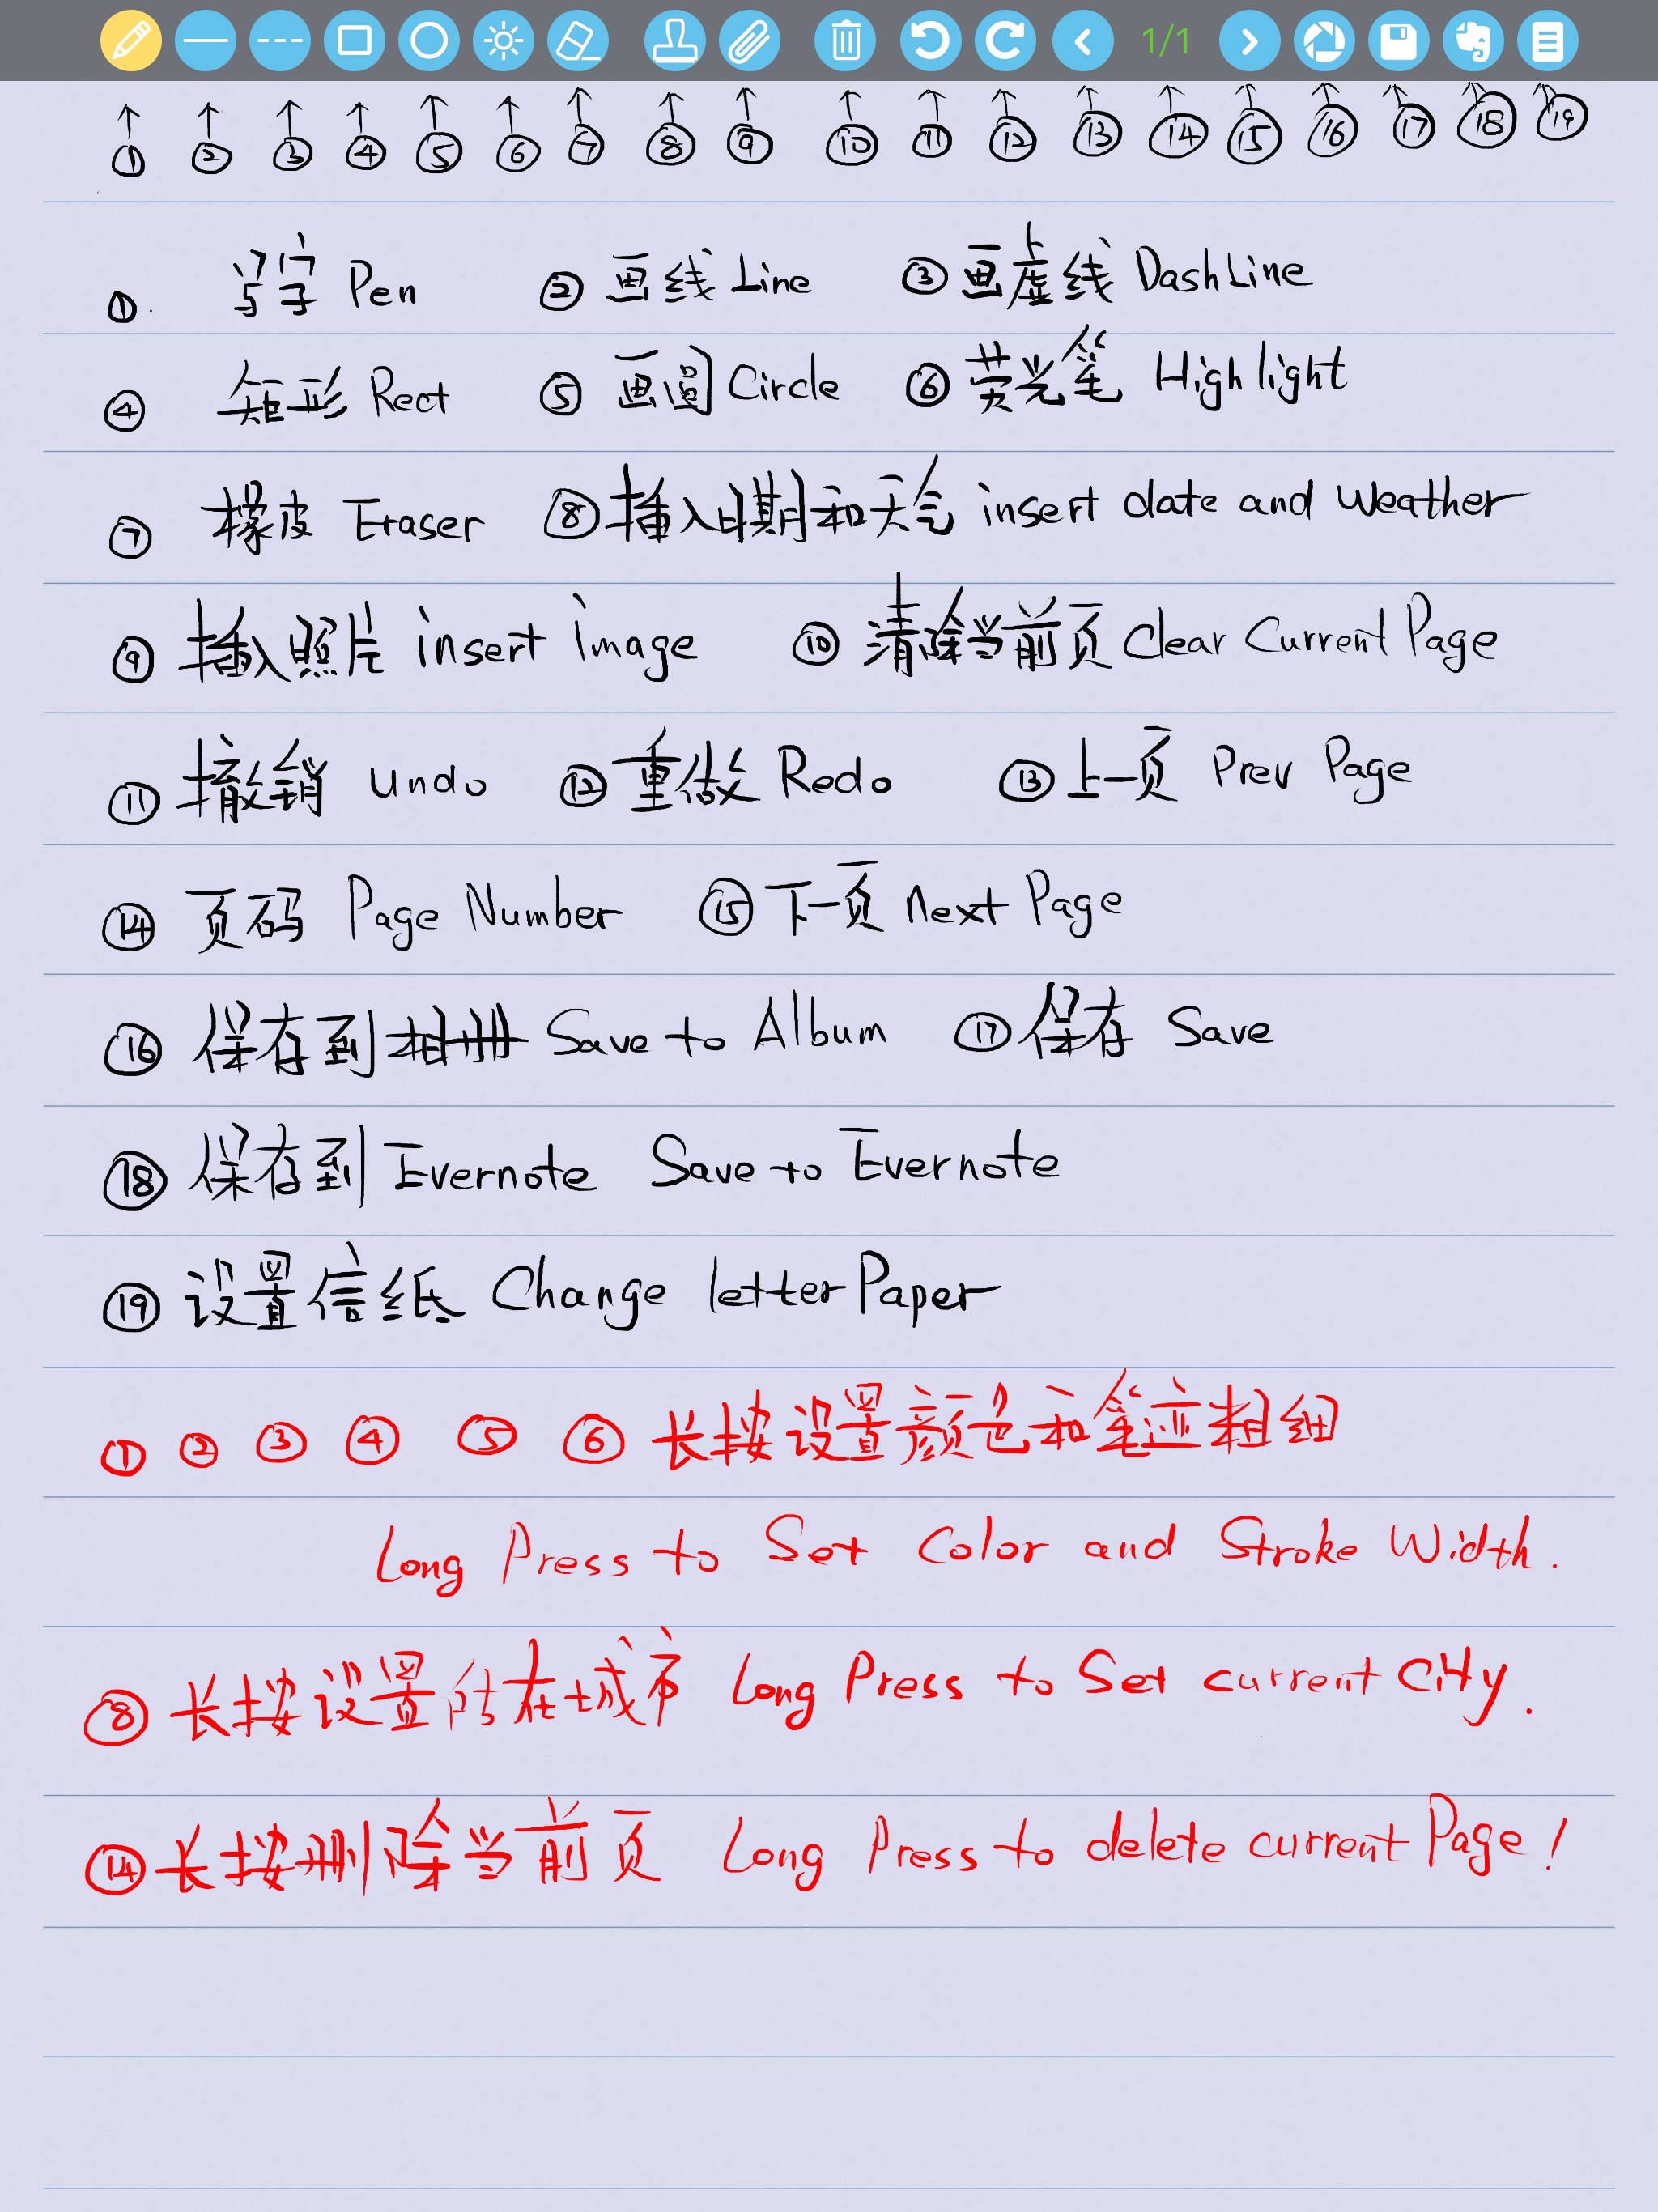 1/1
① ② ③ ④ ⑤ ⑥ ⑦ ⑧ ⑨ ⑩ ⑪ ⑫ ⑬ ⑭ ⑮ ⑯ ⑰ ⑱ ⑲
①. 写字 Pen ② 画线 Line ③ 画虚线 DashLine
④ 矩形 Rect ⑤ 画圆 Circle ⑥ 荧光笔 Highlight
⑦ 橡皮 Eraser ⑧ 插入日期和天气 insert date and Weather
⑨ 插入照片 insert image ⑩ 清除当前页 Clear Current Page
⑪ 撤销 undo ⑫ 重做 Redo ⑬ 上一页 Prev Page
⑭ 页码 Page Number ⑮ 下一页 Next Page
⑯ 保存到相册 Save to Album ⑰ 保存 Save
⑱ 保存到 Evernote Save to Evernote
⑲ 设置信纸 Change letterPaper
① ② ③ ④ ⑤ ⑥ 长按设置颜色和笔迹粗细
Long Press to Set Color and Stroke Width.
⑧ 长按设置所在城市 Long Press to Set current City.
⑭ 长按删除当前页 Long Press to delete current Page!